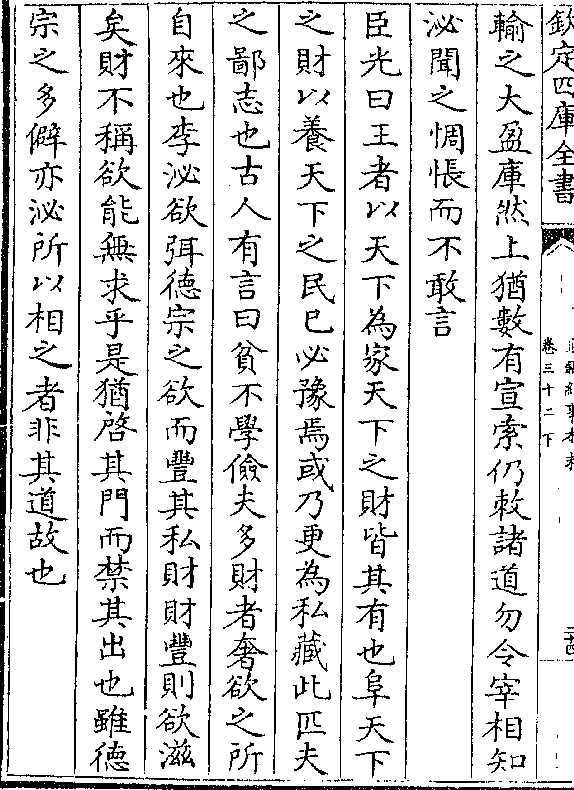 欽定四庫全書
卷三十二下
輸之大盈庫然上猶數有宣索仍敕諸道勿令宰相知
泌聞之惆悵而不敢言
臣光曰王者以天下為家天下之財皆其有也阜天下
之財以養天下之民已必豫焉或乃更為私藏此匹夫
之鄙志也古人有言曰貧不學儉夫多財者奢欲之所
自來也李泌欲弭德宗之欲而豐其私財財豐則欲滋
矣財不稱欲能無求乎是猶啓其門而禁其出也雖德
宗之多僻亦泌所以相之者非其道故也